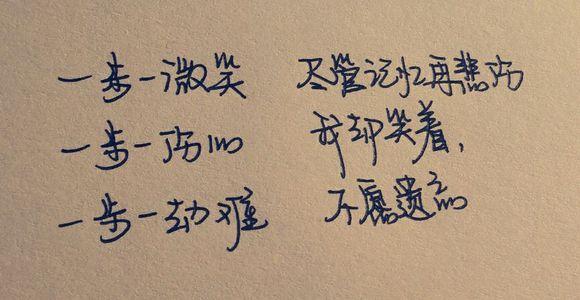 一步一微笑
一步一伤心
一步一劫难
尽管记忆再悲伤
我却笑着，
不愿遗忘